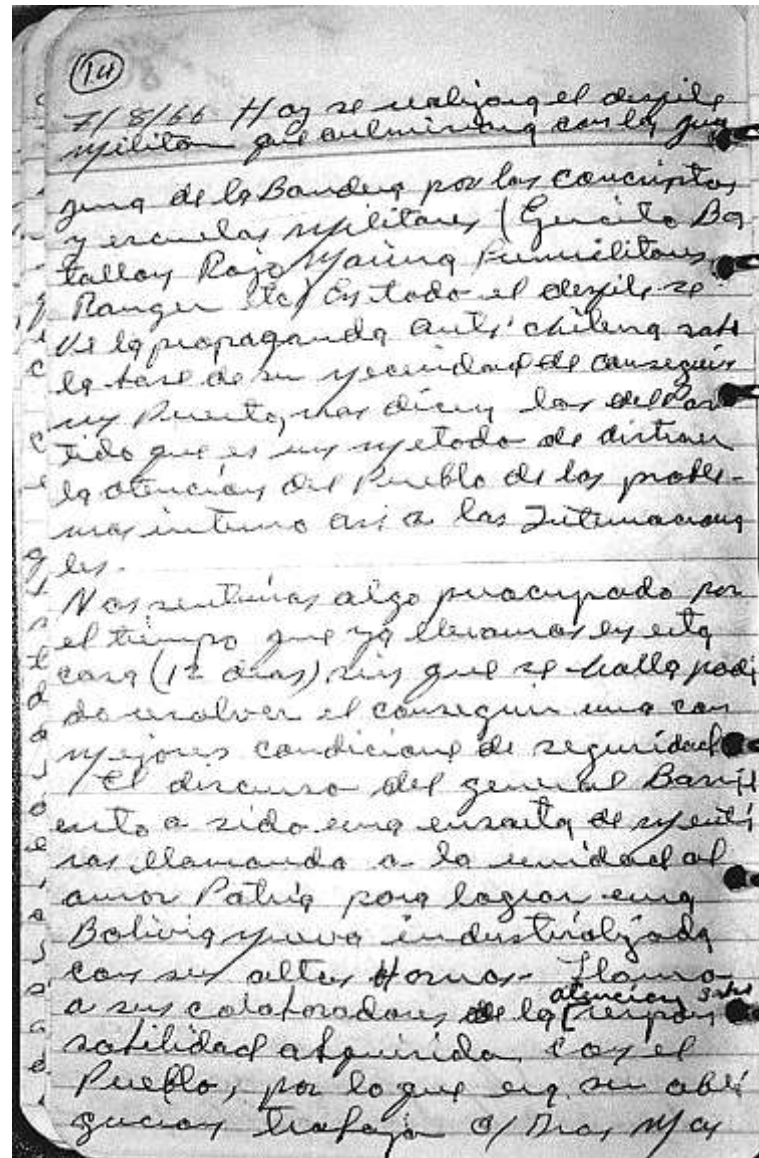 14
7/8/66 Hoy se realizara el desfile
Militar que culminara con la Jura
jura de la Bandera por los concriptos
y escuelas Militares (Gercito Ba
tallon Rojo Marina Pumilitares
Ranger etc) En todo el desfile se
ve la propaganda anti chilena sobre
la base de su necesidad de conseguir
un Puerto, mas dicen los del Par
tido que es un metodo de distraer
la atencion del Pueblo de los proble-
mas interno asi a las Internaciona
les.
Nos sentimos algo preocupado por
el tiempo que ya llevamos en esta
casa (12 dias) sin que se halla podi
do resolver el conseguir una con
mejores condicione de seguridad
El discurso del general Barrit
ento a sido una ensarta de menti
ras llamando a la unidad al
amor Patria para lograr una
Bolivia nueva industrializada
con sus altos Hornos- Llamo
atencion sobre
a sus colaboradores de la respon
sabilidad adquirida con el
Pueblo, por lo que era su obli
gacion trabajar